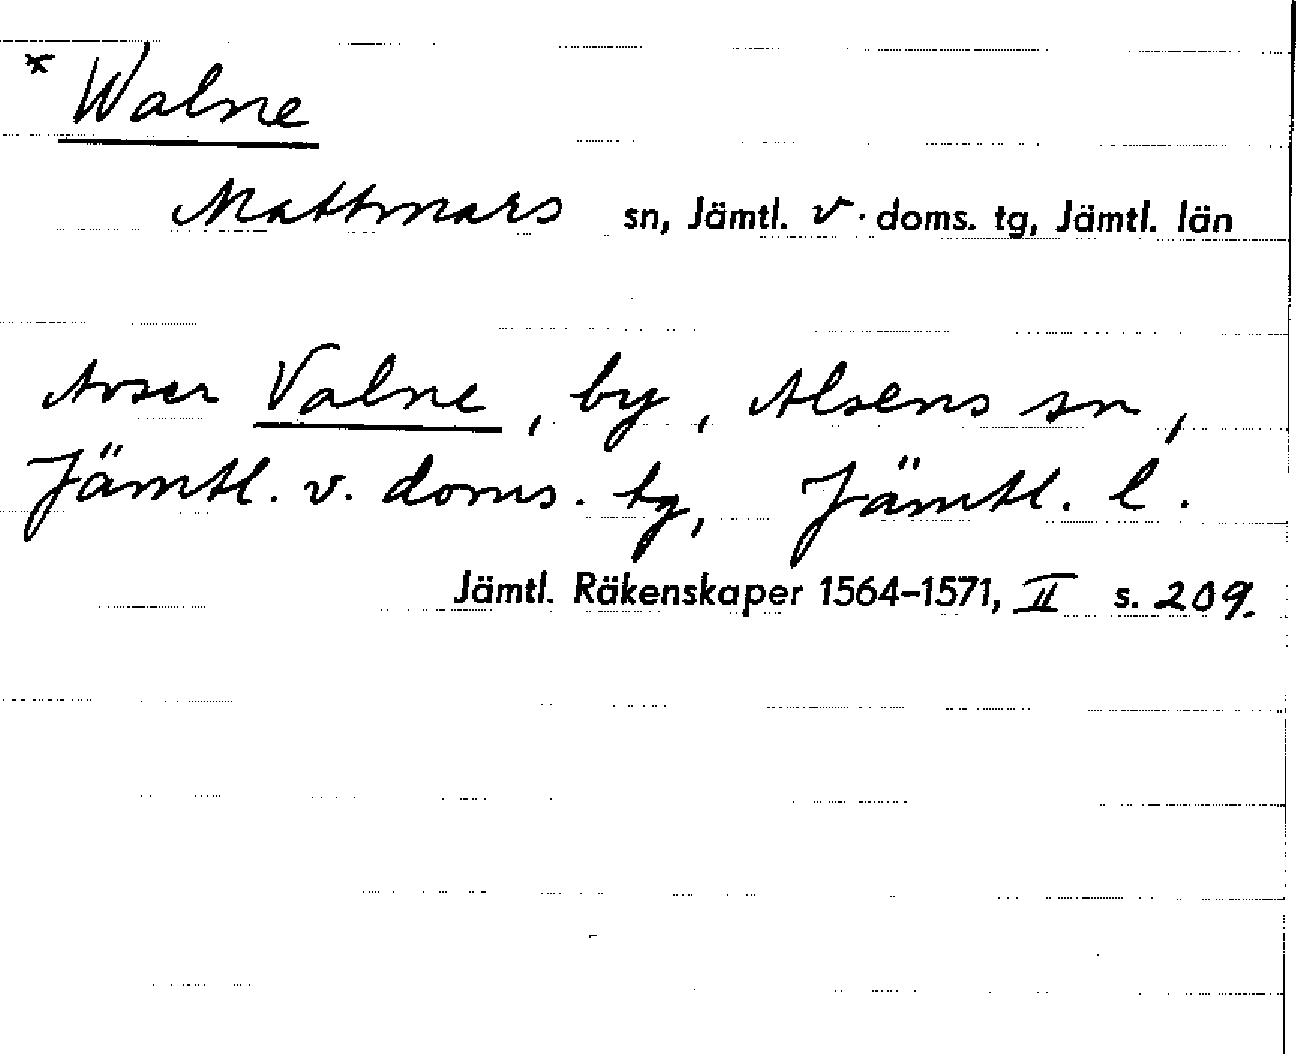 * Walne
Mattmars sn, Jämtl. v. doms. tg, Jämtl. län
Avser Valne, by, Alsens sn,
Jämtl. v. doms. tg, Jämtl. l.
Jämtl. Räkenskaper 1564-1571, II s. 209.